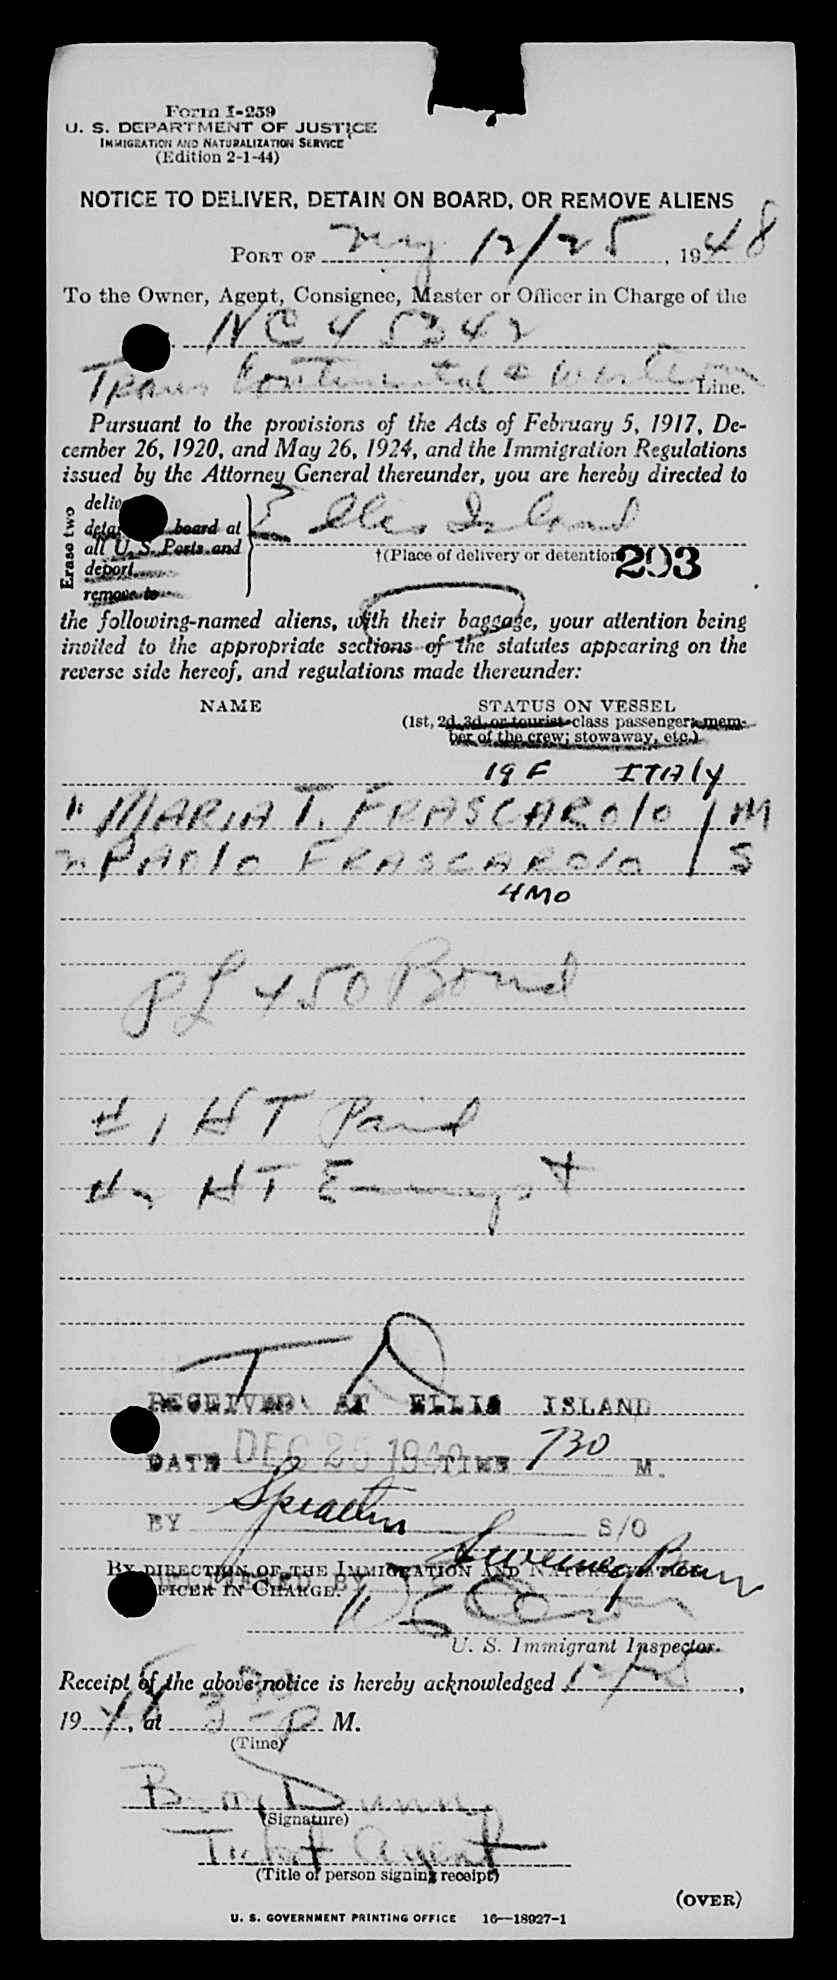 Form I-259
U. S. DEPARTMENT OF JUSTICE
IMMIGRATION AND NATURALIZATION SERVICE
(Edition 2-1-44)
NOTICE TO DELIVER, DETAIN ON BOARD, OR REMOVE ALIENS
PORT OF 12/25, 1948
To the Owner, Agent, Consignee, Master or Officer in Charge of the
NC 45342
Trans Continental & Western Line.
Pursuant to the provisions of the Acts of February 5, 1917, De-
cember 26, 1920, and May 26, 1924, and the Immigration Regulations
issued by the Attorney General thereunder, you are hereby directed to
Erase two
board at
all U. S. Ports and
deport
remove to
Ellis Island
†(Place of delivery or detention
293
the following-named aliens, with their baggage, your attention being
invited to the appropriate sections of the statutes appearing on the
reverse side hereof, and regulations made thereunder:
NAME STATUS ON VESSEL
(1st, 2d, 3d, or tourist-class passenger; mem-
ber of the crew; stowaway, etc.)
19 F ITALY
1 MARIA T. FRASCAROLO / M
2 PAOLO FRASCAROLO / S
4 MO
PL 450 Bond
#1 HT Paid
#2 HT Exempt
T D
RECEIVED AT ELLIS ISLAND
DATE DEC 25 194 TIME 730 M.
BY S/O
BY DIRECTION OF THE IMMIGRATION AND
OFFICER IN CHARGE.
U. S. Immigrant Inspector.
Receipt of the above notice is hereby acknowledged 12/25,
1948, at P M.
(Time)
Dunn
(Signature)
Ticket Agent
(Title of person signing receipt)
(OVER)
U. S. GOVERNMENT PRINTING OFFICE 16—18927-1